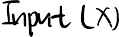 Input (X)